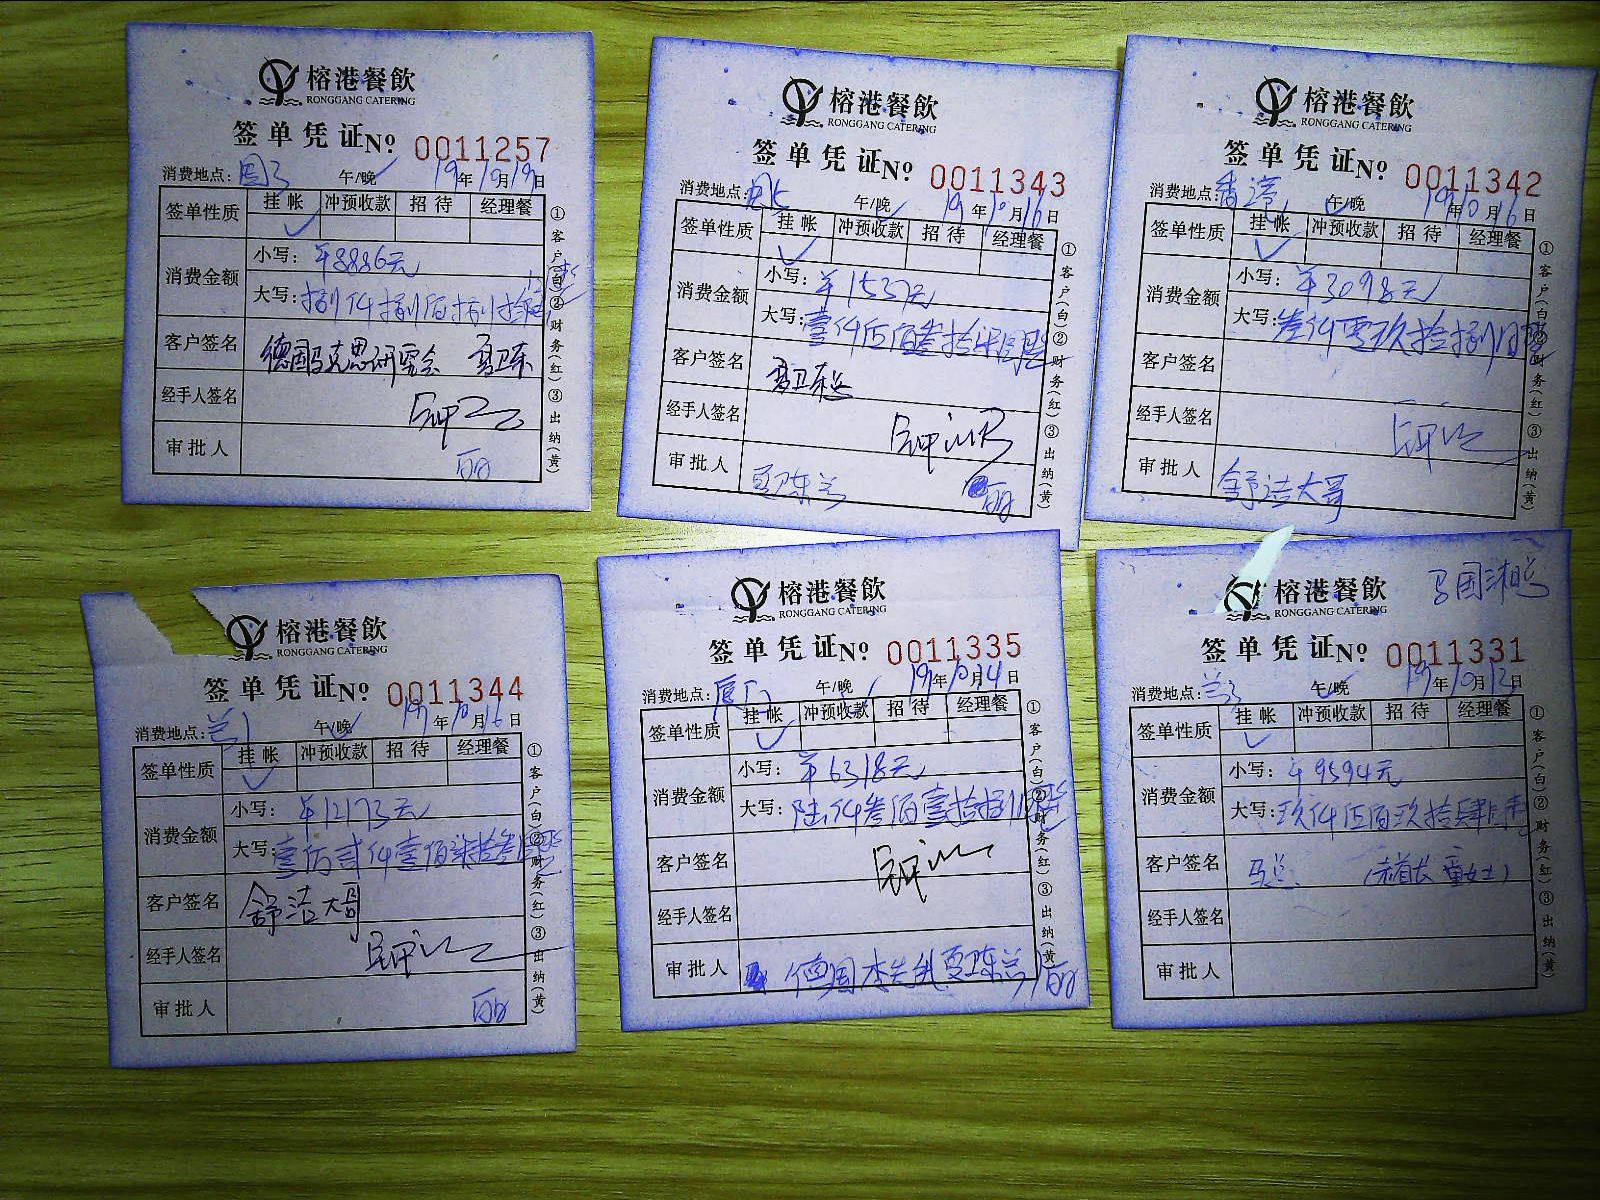 榕港餐飲
RONGGANG CATERING
签单凭证No 0011257
消费地点: 午/晚 19年10月19日
签单性质 挂帐 冲预收款 招待 经理餐
消费金额 小写: ¥8886元
大写: 捌仟捌佰捌拾
客户签名 德国马克思研究会
经手人签名
审批人
①客户(白)②财务(红)③出纳(黄)
榕港餐飲
RONGGANG CATERING
签单凭证No 0011343
消费地点: 午/晚 19年10月16日
签单性质 挂帐 冲预收款 招待 经理餐
消费金额 小写: ¥1537元
大写: 壹仟伍佰叁拾柒
客户签名
经手人签名
审批人
①客户(白)②财务(红)③出纳(黄)
榕港餐飲
RONGGANG CATERING
签单凭证No 0011342
消费地点: 香港 午/晚 19年10月16日
签单性质 挂帐 冲预收款 招待 经理餐
消费金额 小写: ¥3098元
大写: 叁仟零玖拾捌
客户签名
经手人签名
审批人 舒洁大哥
①客户(白)②财务(红)③出纳(黄)
榕港餐飲
RONGGANG CATERING
签单凭证No 0011344
消费地点: 兰1 午/晚 19年10月16日
签单性质 挂帐 冲预收款 招待 经理餐
消费金额 小写: ¥12173元
大写: 壹万贰仟壹佰柒拾叁
客户签名 舒洁大哥
经手人签名
审批人
①客户(白)②财务(红)③出纳(黄)
榕港餐飲
RONGGANG CATERING
签单凭证No 0011335
消费地点: 厦门 午/晚 19年10月14日
签单性质 挂帐 冲预收款 招待 经理餐
消费金额 小写: ¥6318元
大写: 陆仟叁佰壹拾捌
客户签名
经手人签名
审批人 德国
①客户(白)②财务(红)③出纳(黄)
马国湘总
榕港餐飲
RONGGANG CATERING
签单凭证No 0011331
消费地点: 兰3 午/晚 19年10月12日
签单性质 挂帐 冲预收款 招待 经理餐
消费金额 小写: ¥9594元
大写: 玖仟伍佰玖拾肆
客户签名 马总 女士)
经手人签名
审批人
①客户(白)②财务(红)③出纳(黄)